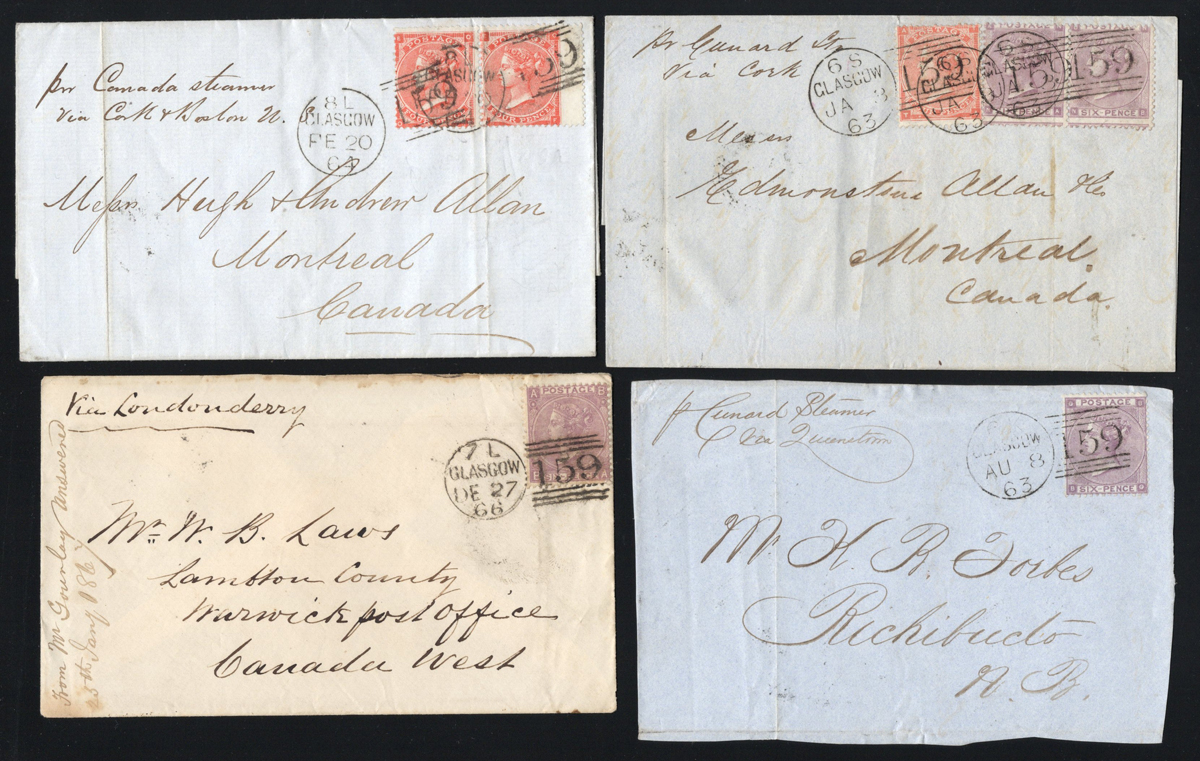 pr Canada steamer
via Cork & Boston U. S.
8 L
GLASGOW
FE 20
64
POSTAGE
FOUR PENCE
159
GLASGOW
159
Messrs Hugh & Andrew Allan
Montreal
Canada
pr Cunard Str
Via Cork
6 S
GLASGOW
JA 8
63
159
GLASGOW
JA
63
POSTAGE
159
GLASGOW
JA
63
POSTAGE
SIX-PENCE
159
Messrs
Edmonstone Allan & Co
Montreal
Canada
Via Londonderry
7 L
GLASGOW
DE 27
66
POSTAGE
159
Mr. W. B. Laws
Lambton County
Warwick post office
Canada West
From Mr Gourlay Answered
25th Jany 1867
pr Cunard Steamer
Via Queenstown
GLASGOW
AU 8
63
POSTAGE
SIX-PENCE
159
Mr H. R. Forbes
Richibucto
N. B.